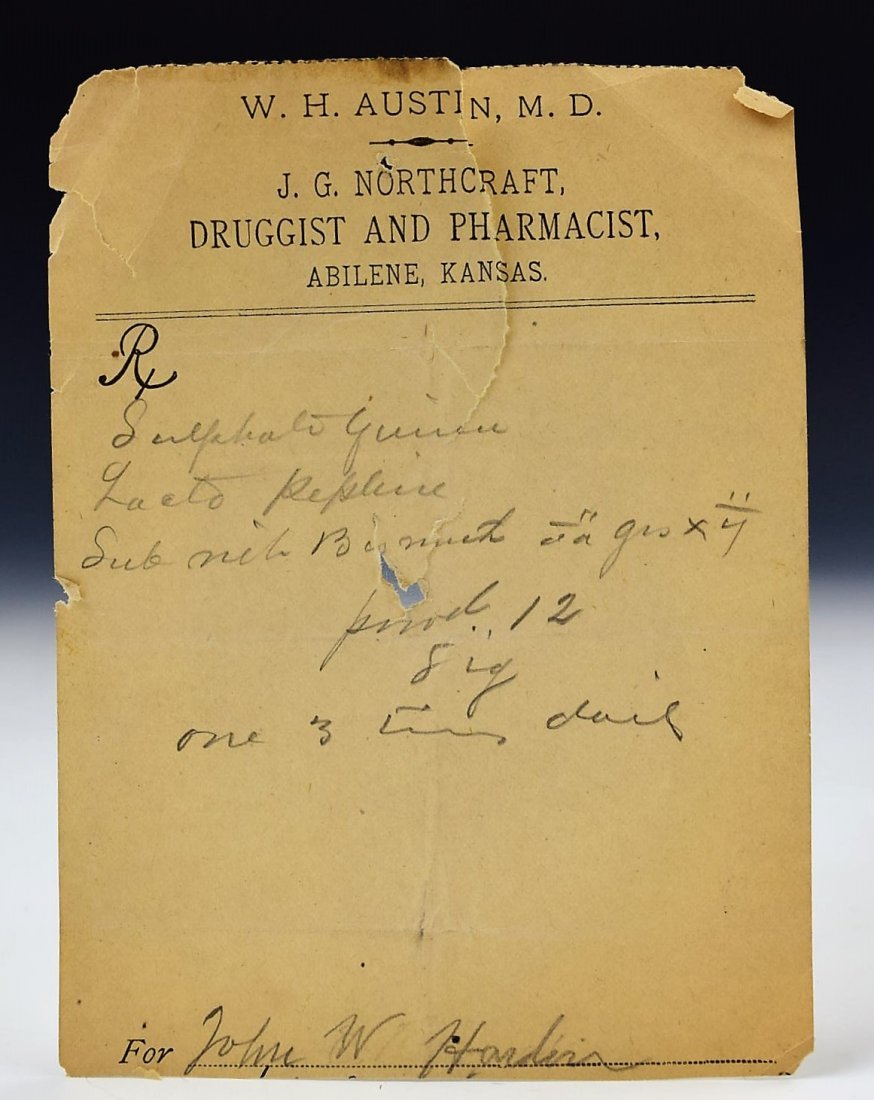 W. H. AUSTIN, M. D.
J. G. NORTHCRAFT,
DRUGGIST AND PHARMACIST,
ABILENE, KANSAS.
Rx
Sulphate Quinine
Lacto Pepsine
Sub nit Bismuth āā grs xii
12
Sig
one 3 times daily
For John W Hardin